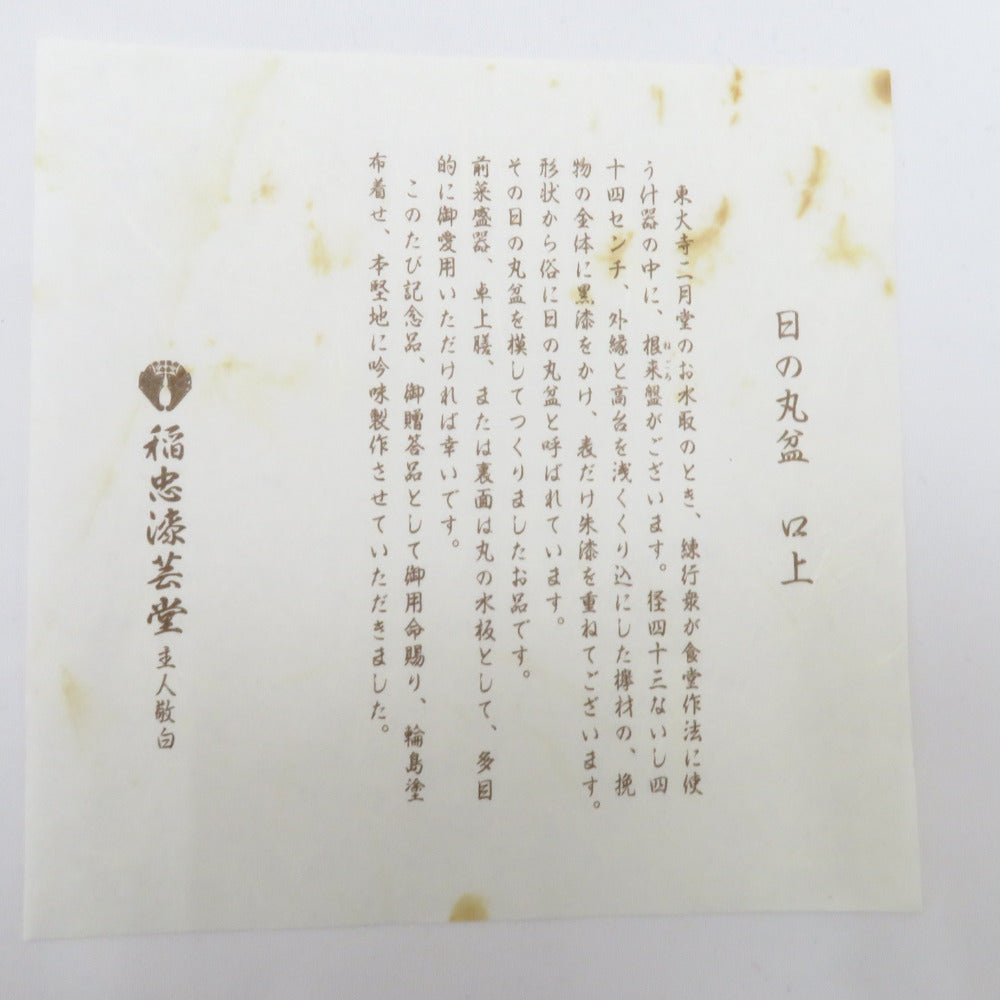 日の丸盆 口上
東大寺二月堂のお水取のとき、練行衆が食堂作法に使
う什器の中に、根来盤がございます。径四十三ないし四
ねごろ
十四センチ、外縁と高台を浅くくり込にした欅材の、挽
物の全体に黒漆をかけ、表だけ朱漆を重ねてございます。
形状から俗に日の丸盆と呼ばれています。
その日の丸盆を模してつくりましたお品です。
前菜盛器、卓上膳、または裏面は丸の水板として、多目
的に御愛用いただければ幸いです。
このたび記念品、御贈答品として御用命賜り、輪島塗
布着せ、本堅地に吟味製作させていただきました。
稲忠漆芸堂 主人敬白